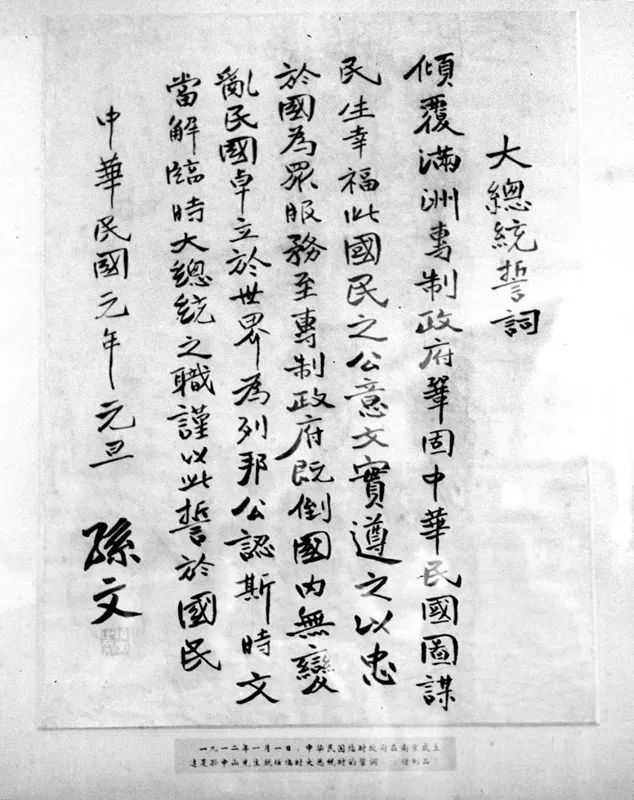 大總統誓詞
傾覆滿洲專制政府鞏固中華民國圖謀
民生幸福此國民之公意文實遵之以忠
於國為眾服務至專制政府既倒國內無變
亂民國卓立於世界為列邦公認斯時文
當解臨時大總統之職謹以此誓於國民
中華民國元年元旦
孫文
一九一二年一月一日，中华民国临时政府在南京成立
这是孙中山先生就任临时大总统时的誓詞。（仿制品）